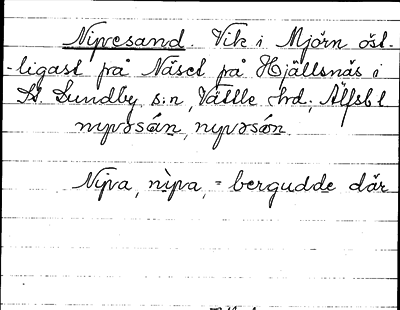 Nipvesand. Vik i Mjörn öst-
-ligast på Näset på Hjällsnäs i
St. Lundby s:n, Vättle hrd; Älfsb l
nypvəsán, nypvəsón.
Nipa, nìpa, = bergudde där